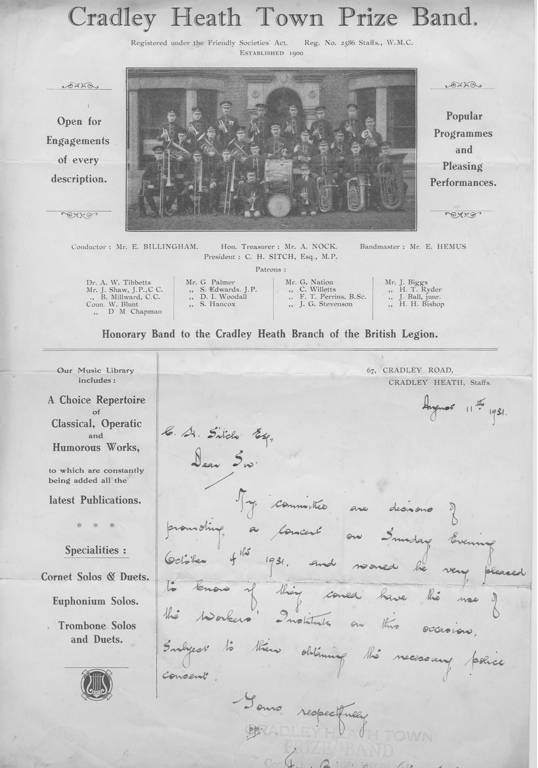 Cradley Heath Town Prize Band.
Registered under the Friendly Societies' Act. Reg. No. 2586 Staffs., W.M.C.
ESTABLISHED 1900
Open for
Engagements
of every
description.
Popular
Programmes
and
Pleasing
Performances.
Conductor : Mr. E. BILLINGHAM. Hon. Treasurer : Mr. A. NOCK. Bandmaster : Mr. E. HEMUS
President : C. H. SITCH, Esq., M.P.
Patrons :
Dr. A. W. Tibbetts
Mr. J. Shaw, J.P., C.C.
„ B. Millward, C.C.
Coun. W. Blunt
„ D M Chapman
Mr. G Palmer
„ S. Edwards. J.P.
„ D. I. Woodall
„ S. Hancox
Mr. G. Nation
„ C. Willetts
„ F. T. Perrins, B.Sc.
„ J. G. Stevenson
Mr. J. Biggs
„ H. T. Ryder
„ J. Ball, junr.
„ H. H. Bishop
Honorary Band to the Cradley Heath Branch of the British Legion.
Our Music Library
includes :
A Choice Repertoire
of
Classical, Operatic
and
Humorous Works,
to which are constantly
being added all the
latest Publications.
* * *
Specialities :
Cornet Solos & Duets.
Euphonium Solos.
Trombone Solos
and Duets.
67, CRADLEY ROAD,
CRADLEY HEATH, Staffs.
August 11th 1931.
C. H. Sitch Esq.,
Dear Sir
My committee are desirous of
promoting a concert on Sunday Evening
October 4th 1931. and would be very pleased
to know if they could have the use of
the Workers' Institute on this occasion.
Subject to them obtaining the necessary police
consent.
Yours respectfully
pp
CRADLEY HEATH TOWN
PRIZE BAND